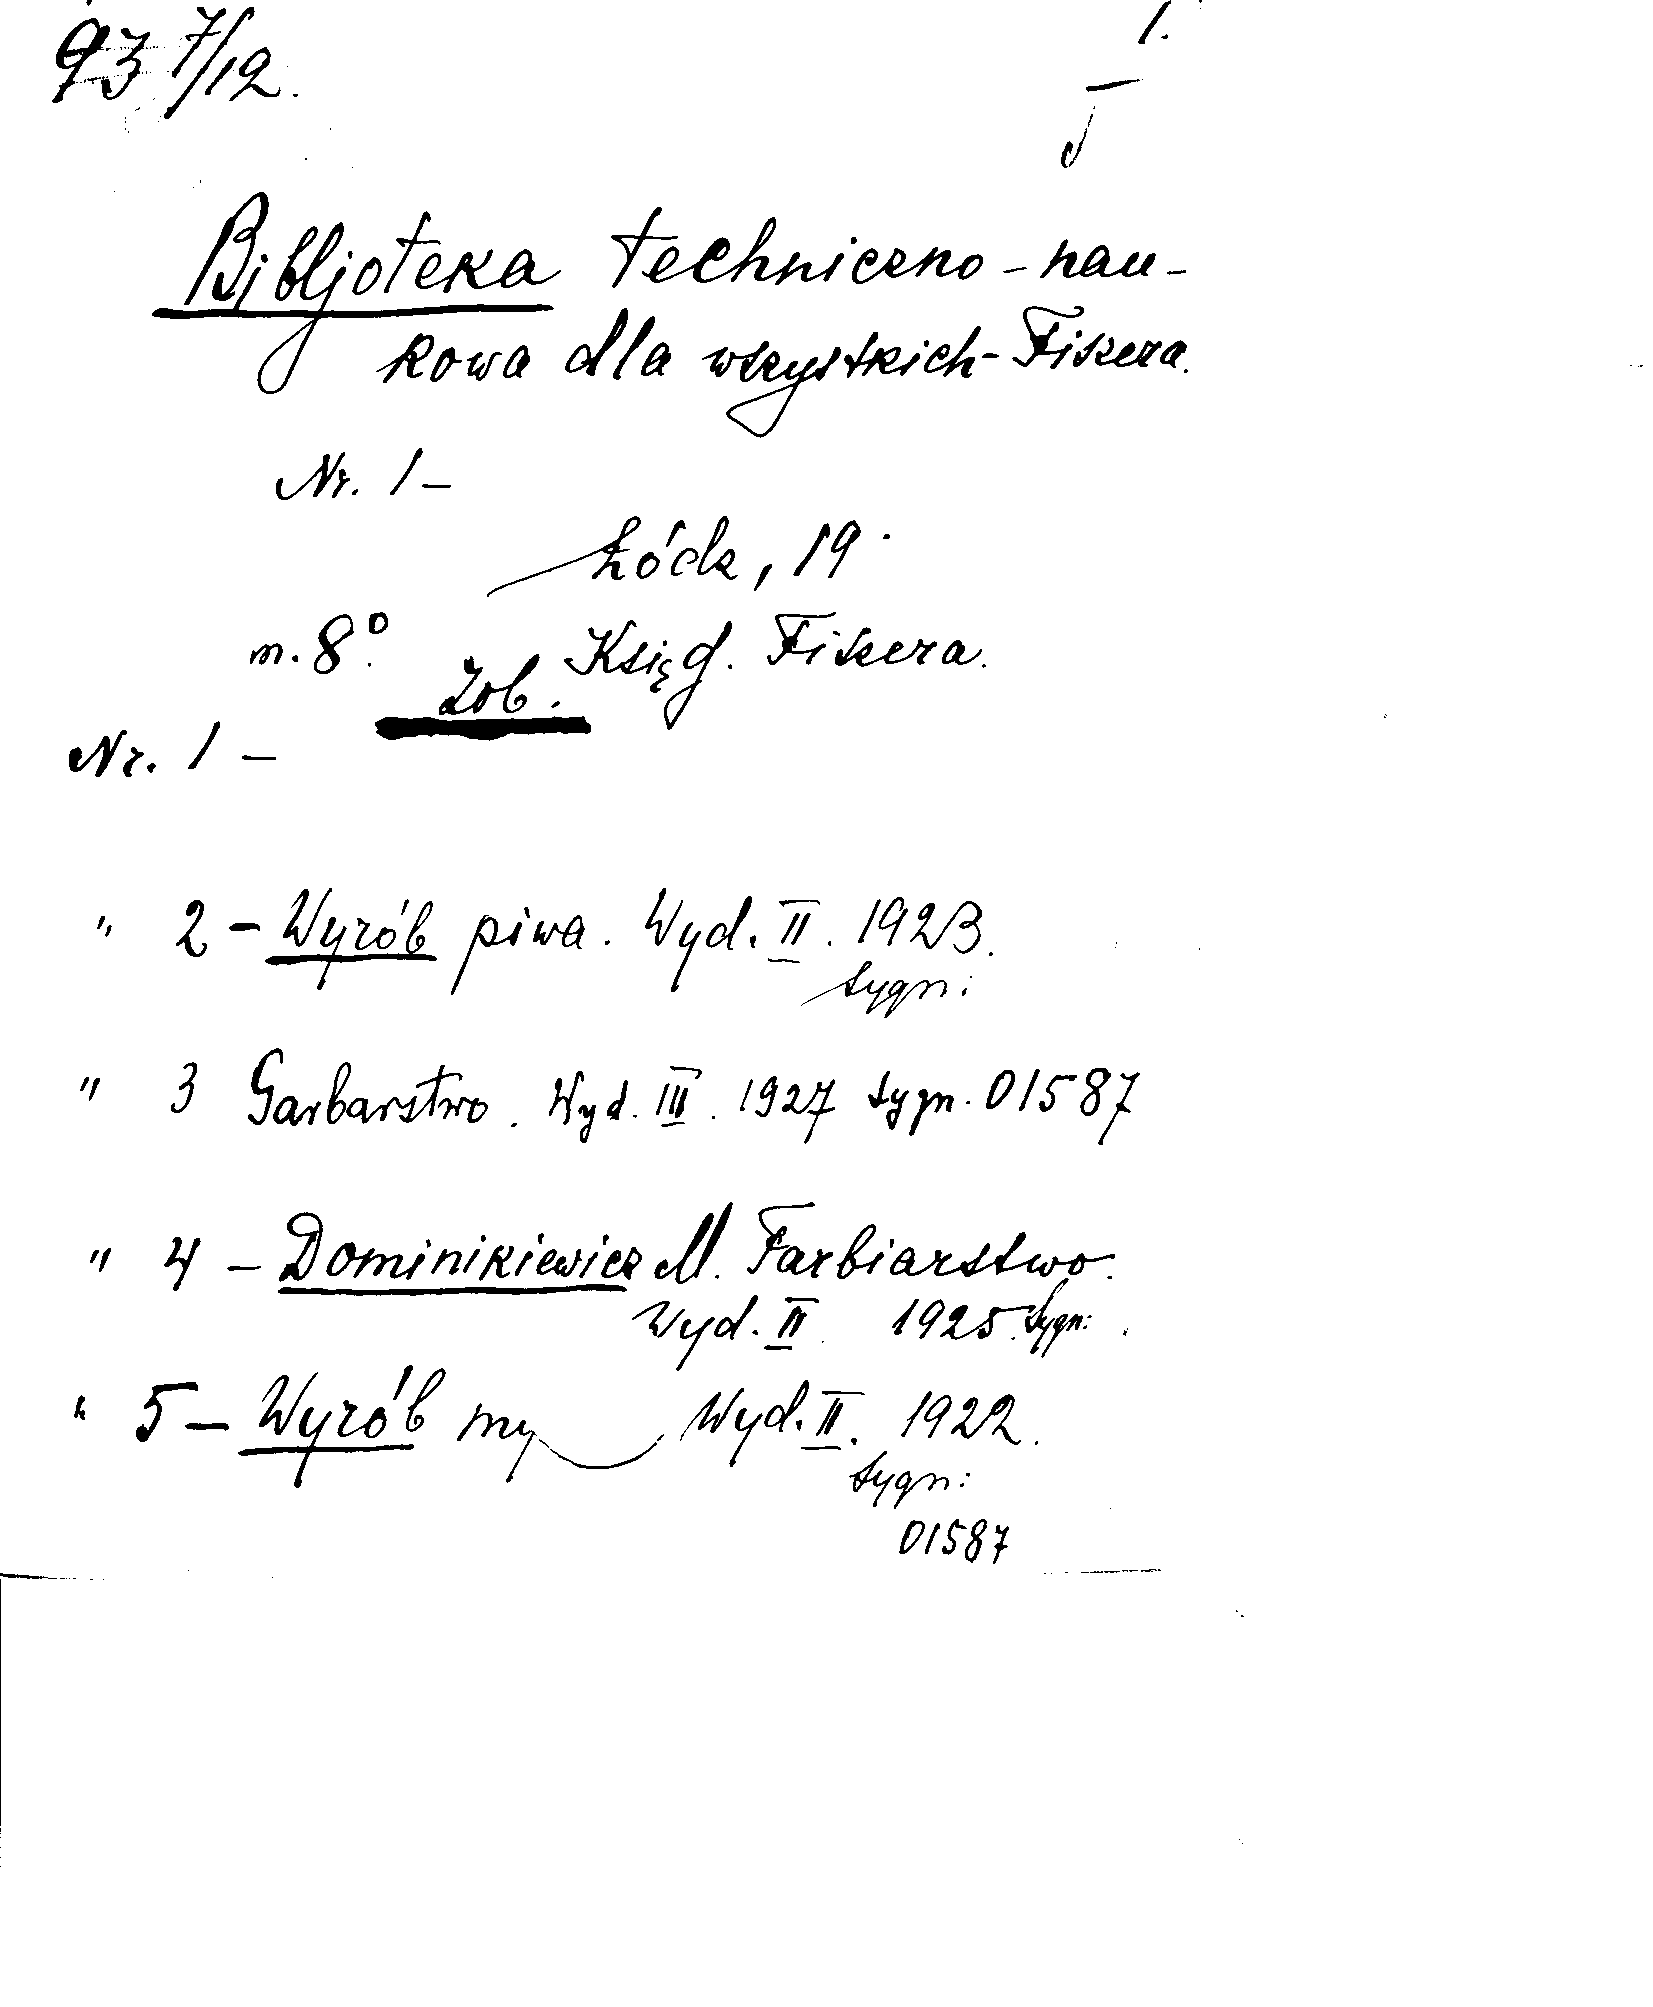 93 7/12.
1.
Bibljoteka techniczno-nau-
kowa dla wszystkich-Fiszera.
Nr. 1-
Łódz, 19
m. 8°. Księg. Fiszera.
Zob.
Nr. 1 -
" 2 - Wyrób piwa. Wyd. II. 1923.
Sygn:
" 3 Garbarstwo. Wyd. III. 1927 Sygn. 01587
" 4 - Dominikiewicz M. Farbiarstwo.
Wyd. II. 1925. Sygn:
" 5 - Wyrób my Wyd. II. 1922.
Sygn:
01587